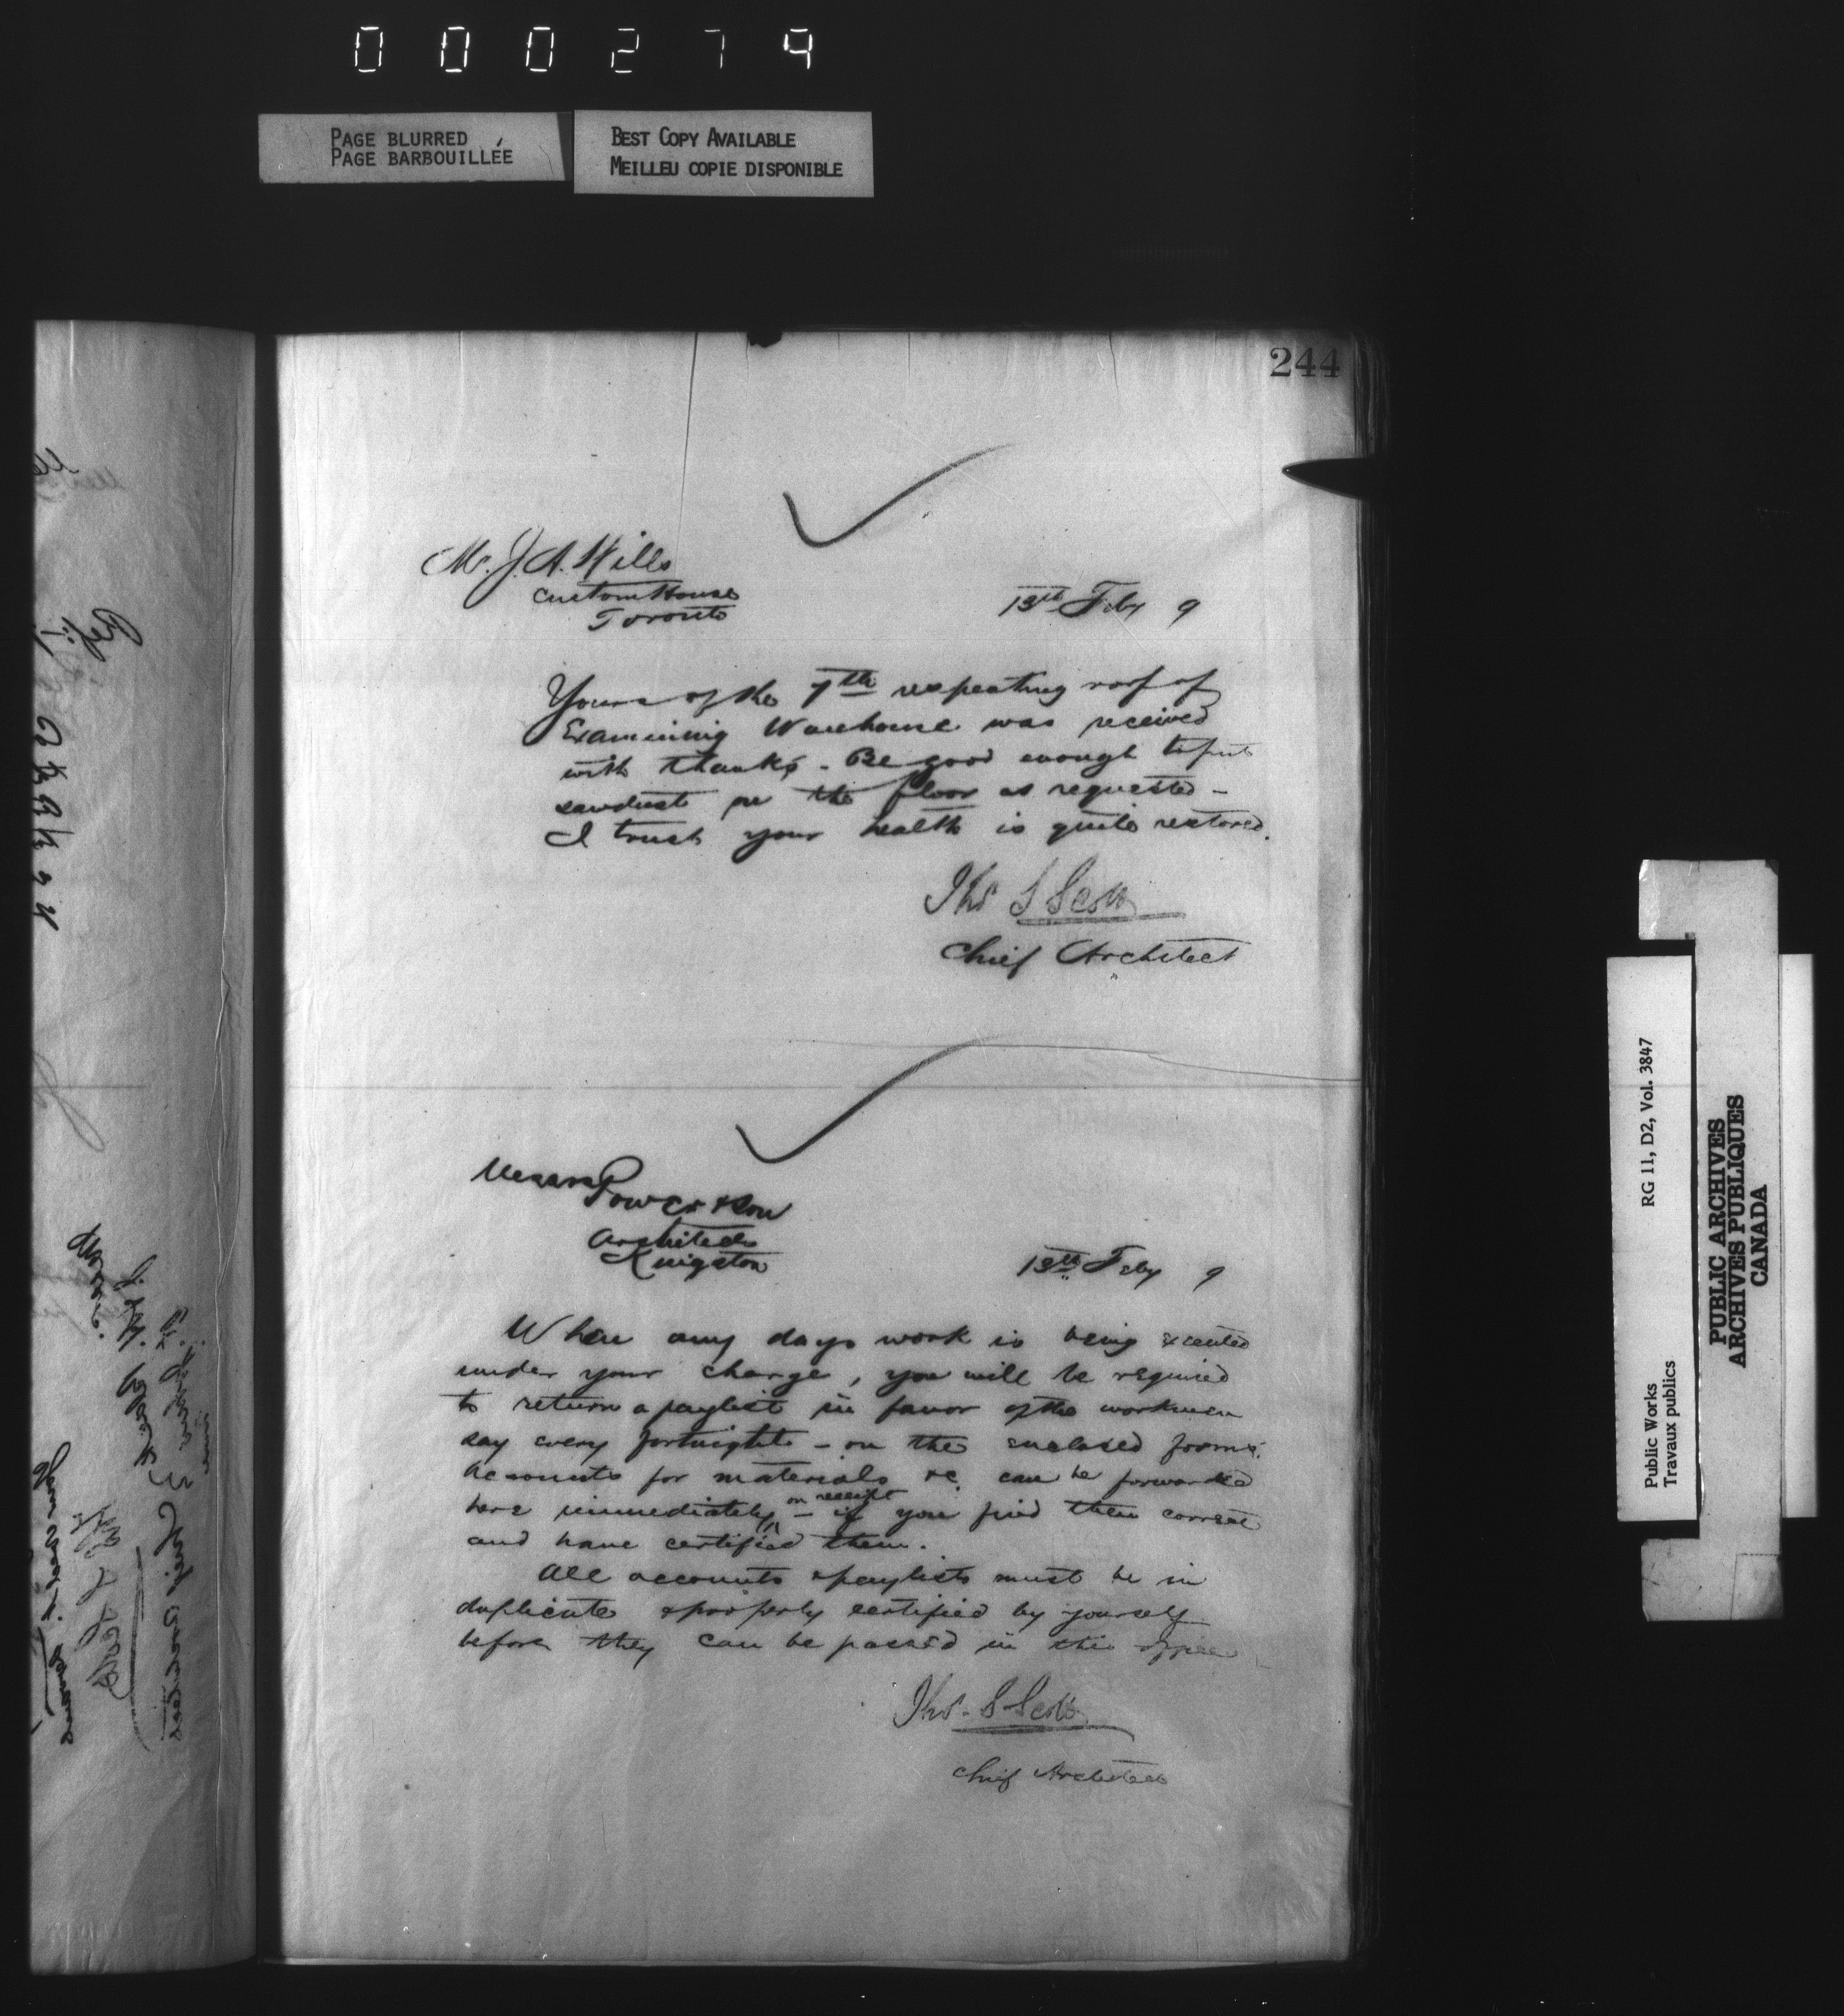 000274
PAGE BLURRED
PAGE BARBOUILLÉE
BEST COPY AVAILABLE
MEILLEU COPIE DISPONIBLE
244
Mr. J. A. Wills
Custom House
Toronto
13th Feby 9
Yours of the 7th respecting roof of
Examining Warehouse was received
with thanks. Be good enough to put
sawdust on the floor as requested -
I trust your health is quite restored.
Thos S Scott
Chief Architect
Messrs
Power & Son
Architects
Kingston
13th Feby 9
When any days work is being executed
under your charge, you will be required
to return a paylist in favor of the workmen
say every fortnight - on the enclosed forms.
Accounts for materials &c. can be forwarded
here immediately on receipt - if you find them correct
and have certified them.
All accounts & paylists must be in
duplicate & properly certified by yourself
before they can be passed in this office
Thos. S Scott
Chief Architect
Public Works
Travaux publics
RG 11, D2, Vol. 3847
PUBLIC ARCHIVES
ARCHIVES PUBLIQUES
CANADA